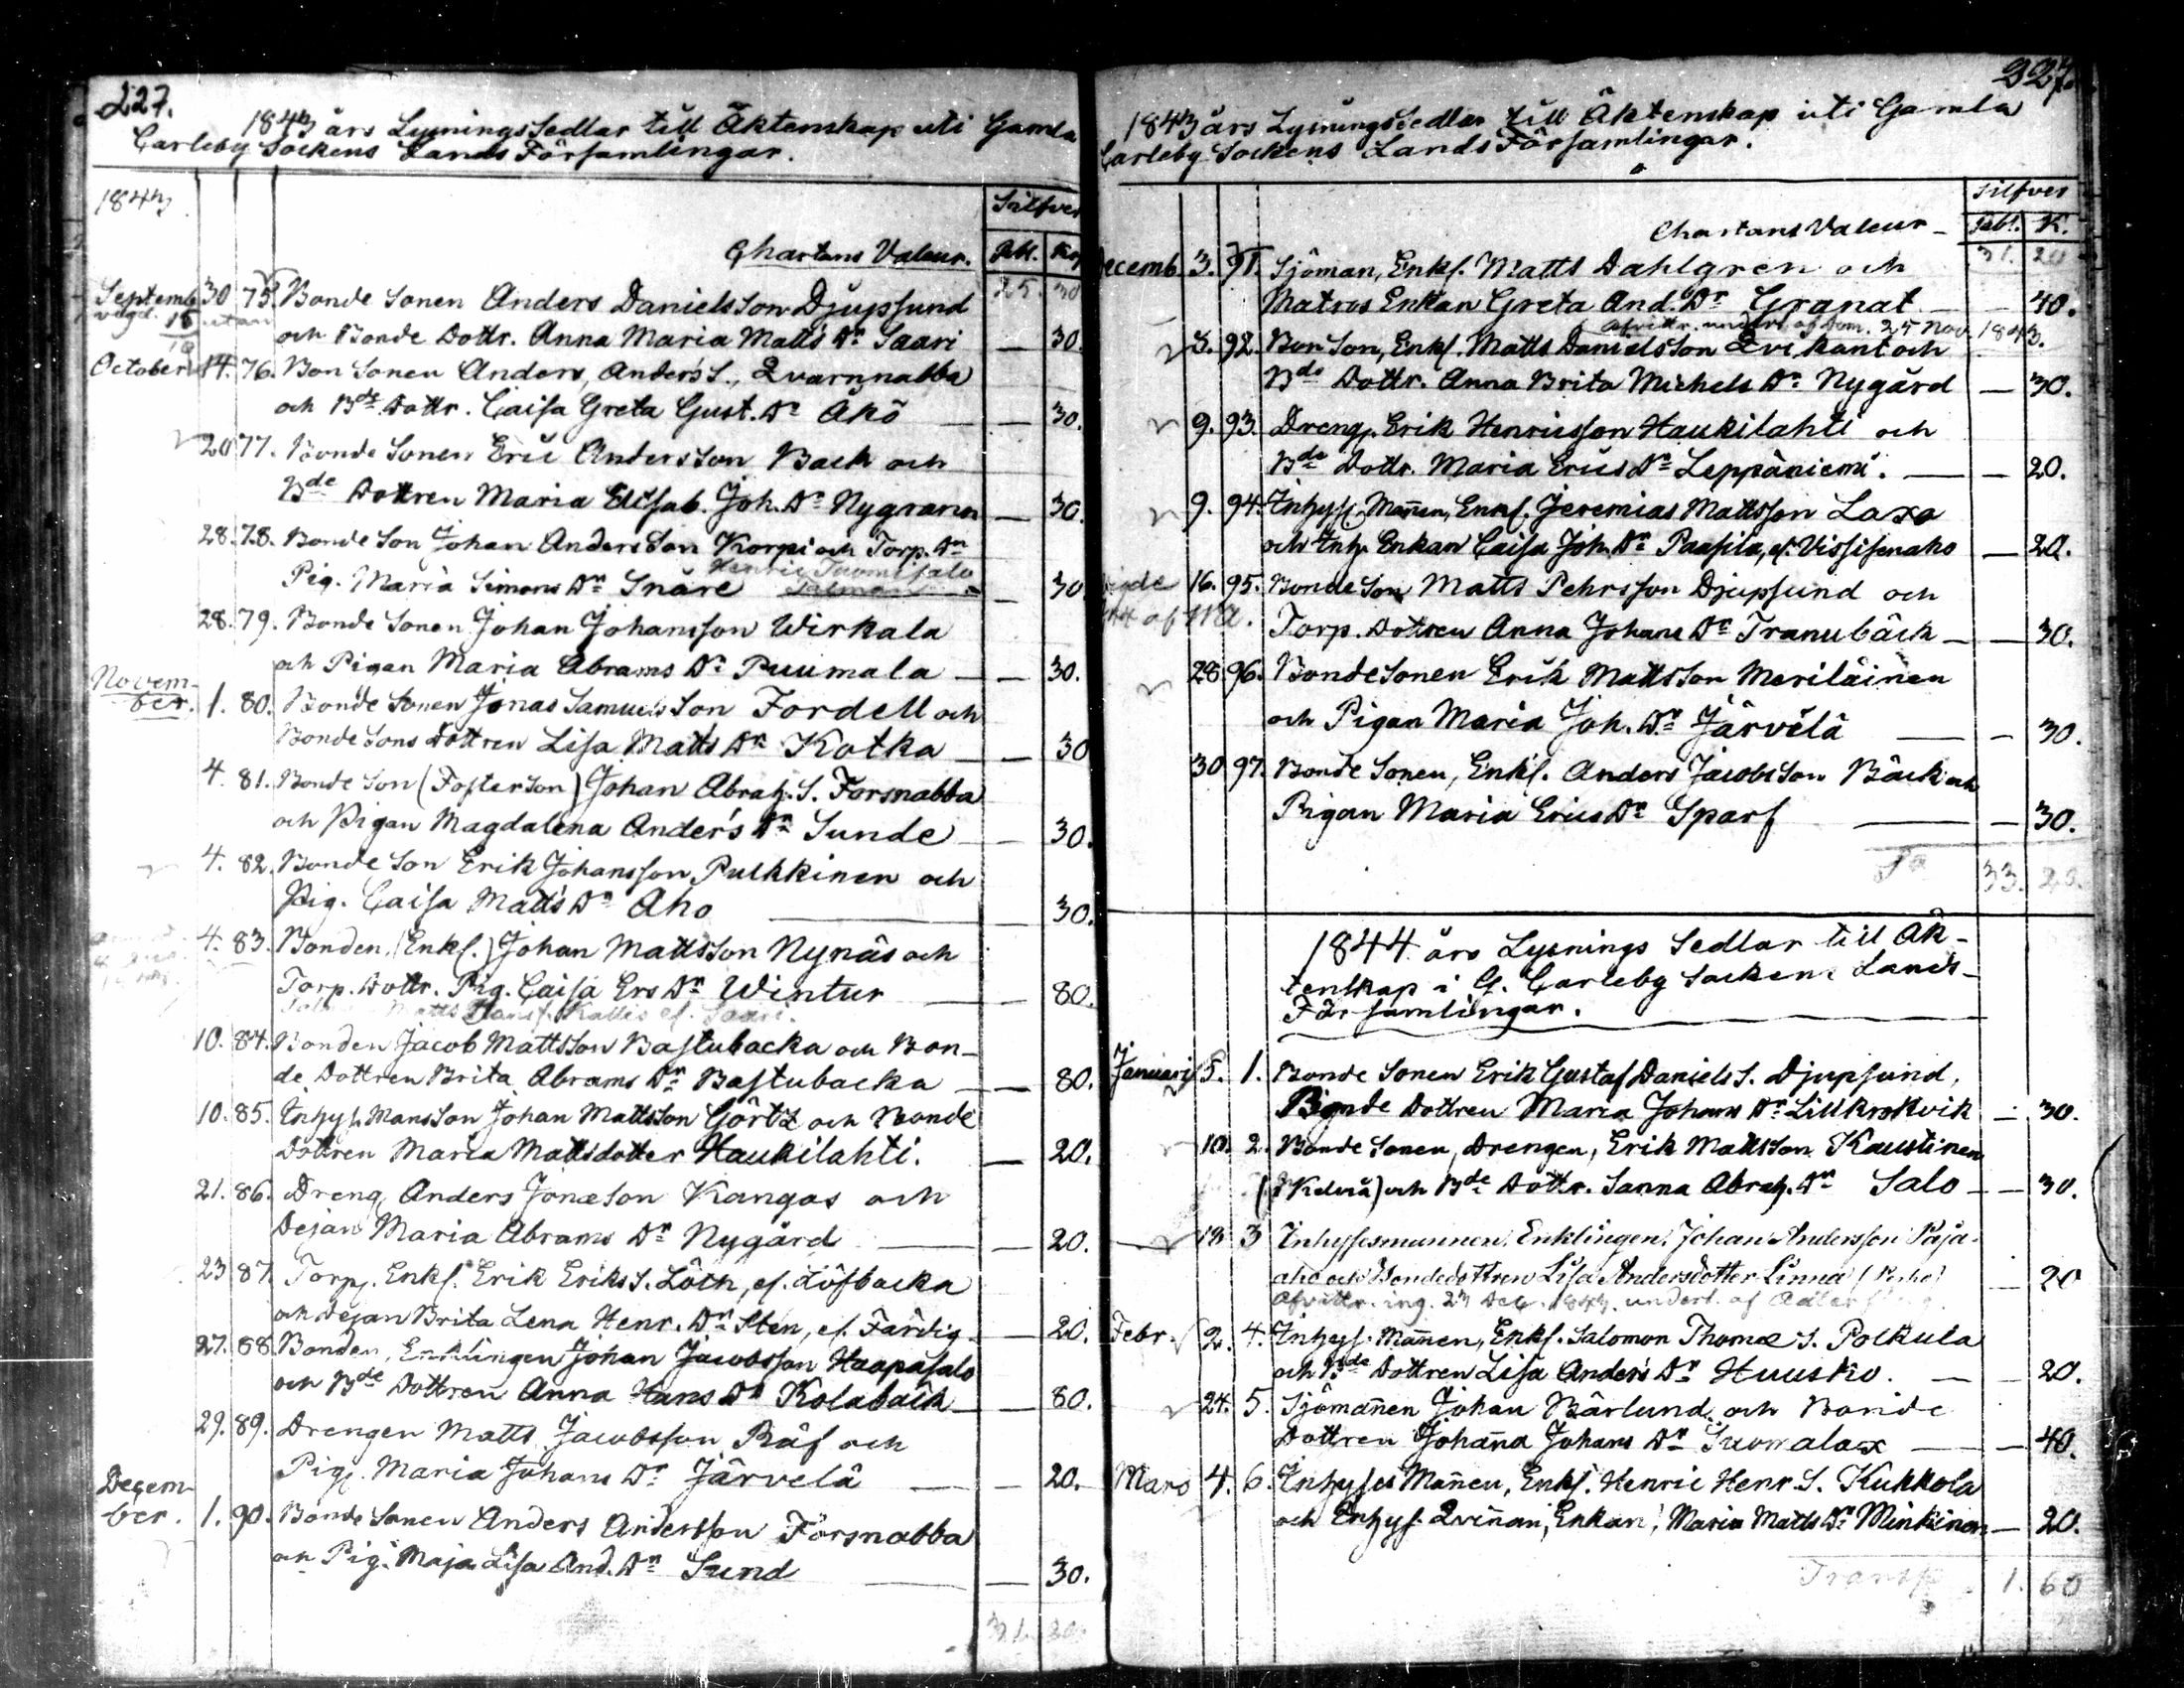 227.
1843 års Lysnings Sedlar till Äktenskap uti Gamla
Carleby Sockens Lands Församlingar.
1843
Silfver
Chartans Valeur. Rbl. Kop
25. 30
Septemb 30 75. Bonde Sonen Anders Danielsson Djupsund
och Bonde Dottr. Anna Maria Matts Dr Saari — 30.
October 14. 76. Bon Sonen Anders, Anders S., Qvarnnabba
och Bde Dottr. Caisa Greta Gust. Dr Åkö — 30.
20 77. Bonde Sonen Eric Andersson Back och
Bde Dottren Maria Elisab. Joh. Dr Nygrann — 30.
28. 78. Bonde Son Johan Andersson Korpi och Torp. Dn
Henric Tuomisalo
Pig. Maria Simons Dr Snåre — 30
28. 79. Bonde Sonen Johan Johansson Wirkala
och Pigan Maria Abrams Dr Puumala — 30.
Novem-
ber. 1. 80. Bonde Sonen Jonas Samuelsson Fordell och
Bonde Sons Dottren Lisa Matts Dr Kotka — 30
4. 81. Bonde Son (Fosterson) Johan Abrah. S. Forsnabba
och Pigan Magdalena Anders Dr Sunde — 30.
4. 82. Bonde Son Erik Johansson Pulkkinen och
Pig. Caisa Matts Dr Aho — 30.
4. 83. Bonden, (Enkl.) Johan Mattsson Nynäs och
Torp. Dottr. Pig. Caisa Ers Dr Wintur — 80.
10. 84. Bonden Jacob Mattsson Bastubacka och Bon-
de Dottren Brita Abrams Dr Bastubacka — 80.
10. 85. Inhys. Mansson Johan Mattsson Görtz och Bonde
Dottren Maria Mattsdotter Haukilahti. — 20.
21. 86. Dreng Anders Jonæson Kangas och
Dejan Maria Abrams Dr Nygård — 20.
23 87. Torp. Enkl. Erik Eriks S. Löth, el. Löfbacka
och Dejan Brita Lena Henr. Dr Sten, el. Färdig — 20.
27. 88. Bonden, Enklingen Johan Jacobsson Haapasalo
och Bde Dottren Anna Hans Dr Kolaback — 80.
29. 89. Drengen Matts Jacobsson Räf och
Pig. Maria Johans Dr Järvelä — 20.
Decem-
ber. 1. 90. Bonde Sonen Anders Andersson Forsnabba
och Pig. Maja Lisa And. Dr Sund — 30.
227.
1843 års Lysnings Sedlar till Äktenskap uti Gamla
Carleby Sockens Lands Församlingar.
Silfver
Chartans Valeur — Rbl. K.
31. 20
Decemb. 3. 91. Sjöman, Enkl. Matts Dahlgren och
Matros Enkan Greta And. Dr Granat — 40.
25 Nov. 1843.
3. 92. Bon Son, Enkl. Matts Danielsson Qvikant och
Bde Dottr. Anna Brita Michels Dr Nygård — 30.
9. 93. Dreng. Erik Henricsson Haukilahti och
Bde Dottr. Maria Erics Dr Leppäniemi. — 20.
9. 94. Inhys. Mannen, Enkl. Jeremias Mattsson Laxo
och Inh. Enkan Caisa Joh. Dr Paasila, el. Vissisenaho — 20.
16. 95. Bonde Son Matts Pehrsson Djupsund och
Torp. Dottren Anna Johans Dr Tranubäck — 30.
28. 96. Bonde Sonen Erik Mattsson Meriläinen
och Pigan Maria Joh. Dr Järvelä — 30.
30 97. Bonde Sonen, Enkl. Anders Jacobsson Bäck och
Pigan Maria Erics Dr Sparf — 30.
33. 20.
1844 års Lysnings Sedlar till Äk-
tenskap i G. Carleby Sockens Lands-
Församlingar.
Januari 5. 1. Bonde Sonen Erik Gustaf Daniels S. Djupsund,
Bonde Dottren Maria Johans Dr Lillkrokvik — 30.
10. 2. Bonde Sonen, Drengen, Erik Mattsson Kaustinen
(i Kelviå) och Bde Dottr. Sanna Abrah. Dr Salo — 30.
18 3 Inhysesmannen, Enklingen, Johan Andersson Paja-
aho och Bondedottren Lisa Andersdotter Linna (Perho) — 20
Afvittr. ing. 23 Dec. 1843. underl. af
Febr. 2. 4. Inhys. Mannen, Enkl. Salomon Thomæ S. Polkula
och Bde Dottren Lisa Anders Dr Huusko. — 20.
24. 5. Sjömannen Johan Bärlund och Bonde
Dottren Johanna Johans Dr Suomalax — 40.
Mars 4. 6. Inhyses Mannen, Enkl. Henric Henr. S. Kukkola
och Inhys. Qvinnan, Enkan, Maria Matts Dr Minkinen — 20.
Transp. 1. 60